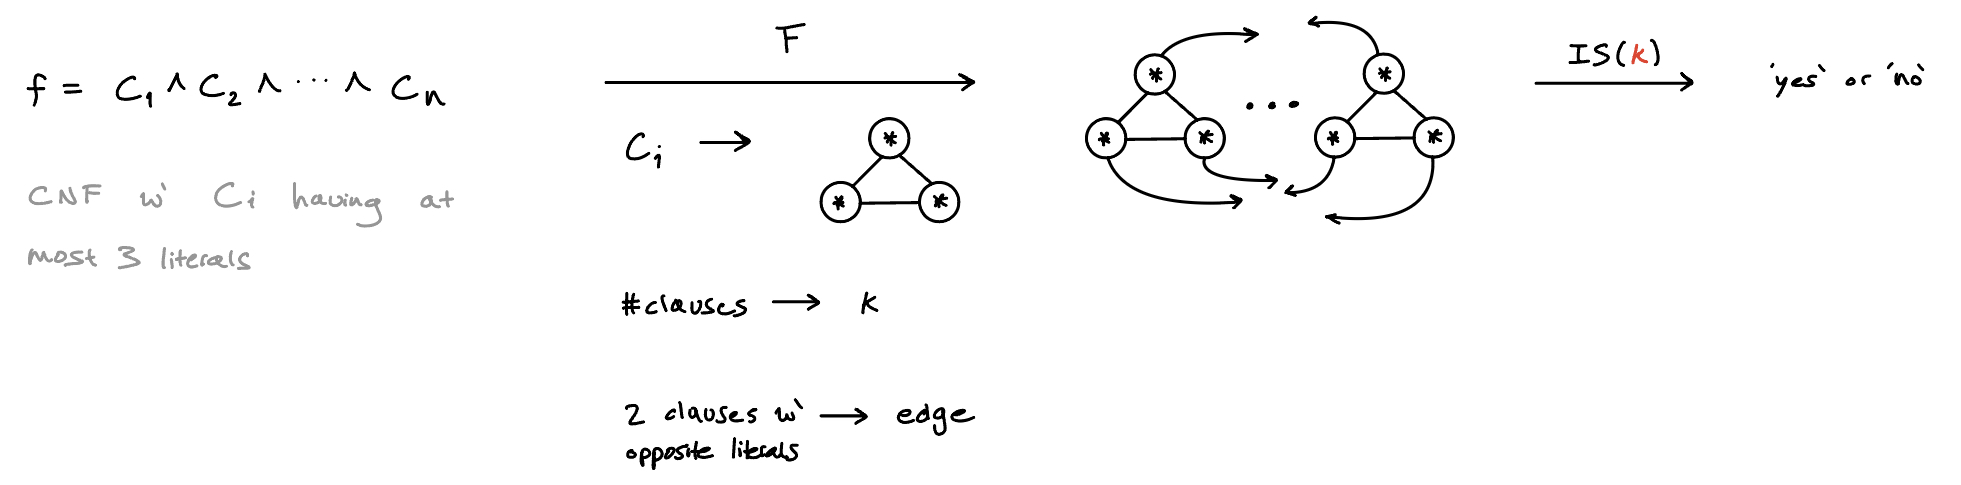 f = C₁ ∧ C₂ ∧ ··· ∧ Cₙ
CNF w` Cᵢ having at
most 3 literals
F
Cᵢ →
* * *
#clauses → k
2 clauses w` → edge
opposite literals
* * * ... * * *
IS(k)
'yes` or 'no`